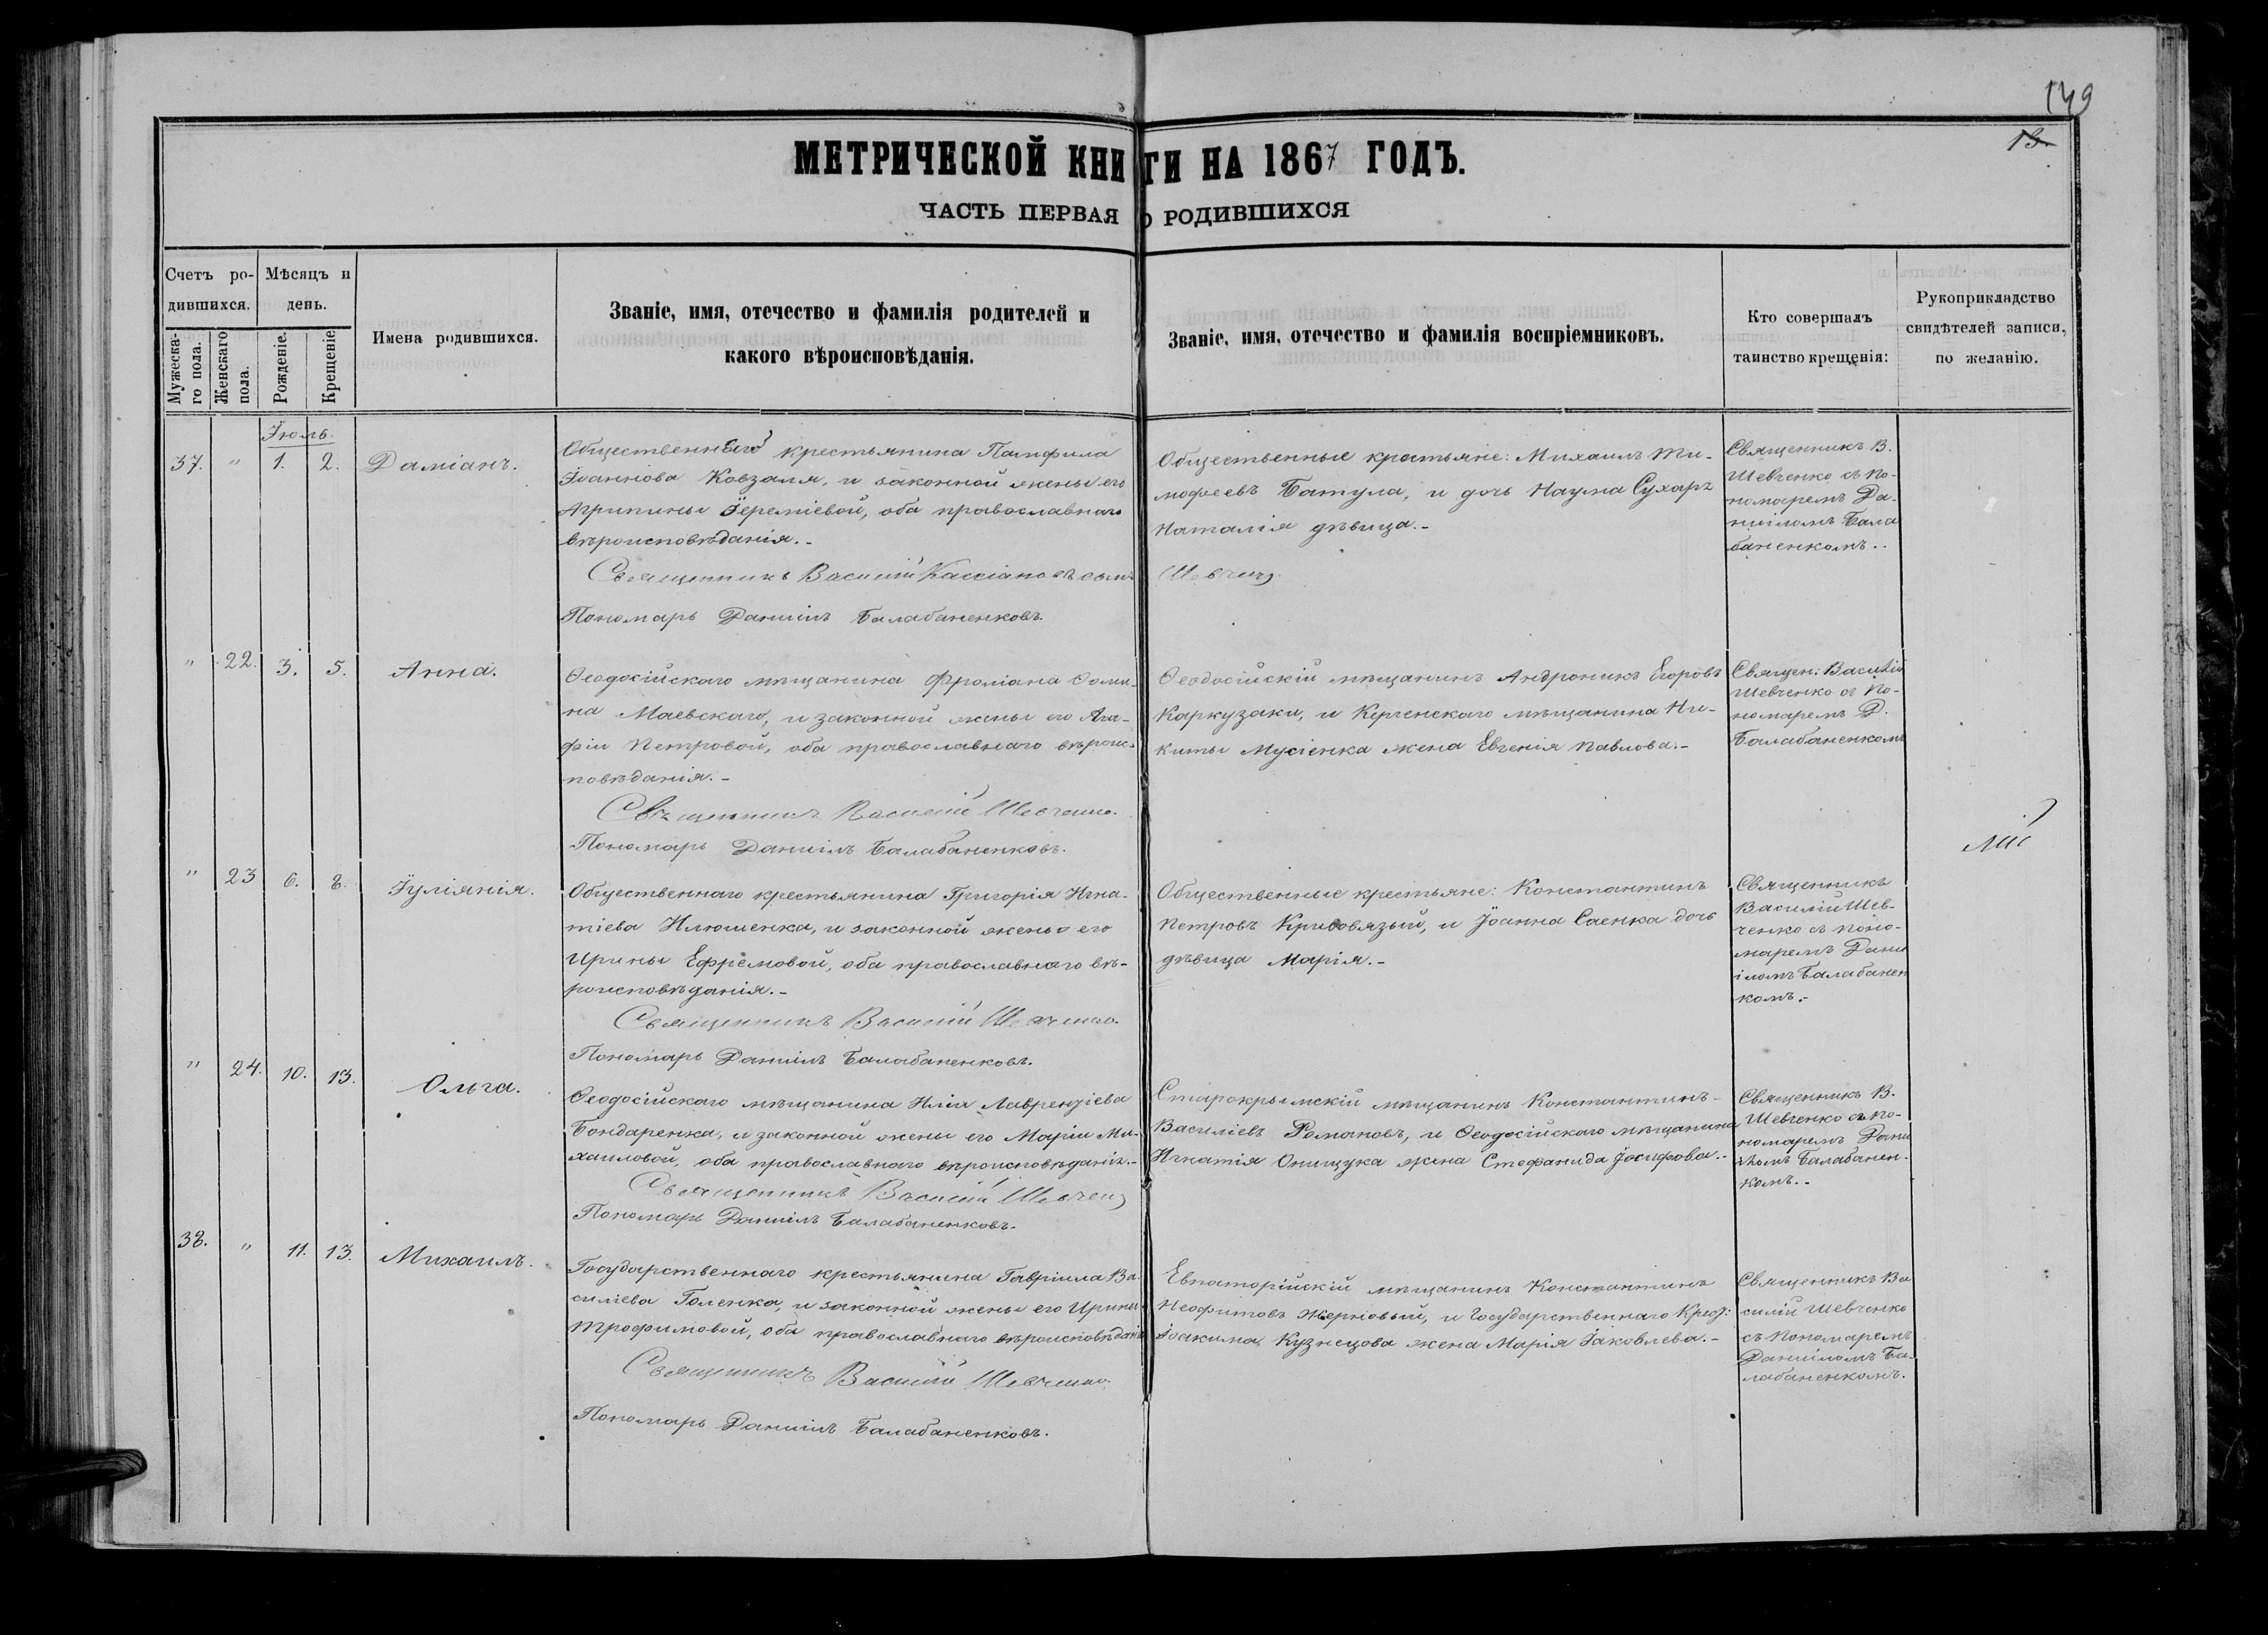 149
13.
МЕТРИЧЕСКОЙ КНИГИ НА 1867 ГОДЪ.
ЧАСТЬ ПЕРВАЯ О РОДИВШИХСЯ
Счетъ ро-
дившихся.
Мужеска-
го пола.
Женскаго
пола.
Мѣсяцъ и
день.
Рожденіе.
Крещеніе
Имена родившихся.
Званіе, имя, отечество и фамилія родителей и
какого вѣроисповѣданія.
Званіе, имя, отечество и фамилія воспріемниковъ.
Кто совершалъ
таинство крещенія:
Рукоприкладство
свидѣтелей записи,
по желанію.
Іюль.
37. " 1. 2. Даміанъ.
Общественнаго крестьянина Памфила
Іоаннова Ковзаля, и законной жены его
Агрипины Іереміевой, оба православнаго
вѣроисповѣданія.-
Священникъ Василій Кассіановъ сынъ
Пономарь Даніилъ Балабаненковъ.
Общественные крестьяне: Михаилъ Ти-
мофеевъ Батула, и дочь Наума Сухаръ
Наталія дѣвица.-
Священникъ В.
Шевченко съ по-
номаремъ Да-
ніиломъ Бала
баненкомъ..
" 22. 3. 5. Анна.
Ѳеодосійскаго мѣщанина Фроліана Ѳоми-
на Маевскаго, и законной жены его Ага-
фіи Петровой, оба православнаго вѣроис-
повѣданія.-
Священникъ Василій Шевченко.
Пономарь Даніилъ Балабаненковъ.
Ѳеодосійскій мѣщанинъ Андроникъ Егоровъ
Каркузаки, и Керченскаго мѣщанина Ни-
киты Мусіенка жена Евгенія Павлова.-
Священ: Василій
Шевченко съ По-
номаремъ Д.
Балабаненкомъ
" 23 6. 8. Іуліянія.
Общественнаго крестьянина Григорія Игна-
тіева Илюшенка, и законной жены его
Ирины Ефремовой, оба православнаго вѣ-
роисповѣданія.-
Священникъ Василій Шевченко.
Пономарь Даніилъ Балабаненковъ.
Общественные крестьяне: Константинъ
Петровъ Кривовязый, и Іоанна Саенка дочь
дѣвица Марія.-
Священникъ
Василій Шев-
ченко съ поно-
маремъ Дани
іломъ Балабанен
комъ.-
" 24. 10. 13. Ольга.
Ѳеодосійскаго мѣщанина Иліи Лаврентіева
Бондаренка, и законной жены его Маріи Ми-
хаиловой, оба православнаго вѣроисповѣданія.-
Священникъ Василій Шевченко
Пономарь Даніилъ Балабаненковъ.
Старокрымскій мѣщанинъ Константинъ-
Василіевъ Романовъ, и Ѳеодосійскаго мѣщанина
Игнатія Онищука жена Стефанида Іосифова.-
Священникъ В.
Шевченко съ по-
номаремъ Дани
іломъ Балабанен-
комъ.-
38. " 11. 13. Михаилъ.
Государственнаго крестьянина Гавріила Ва-
силіева Голенка, и законной жены его Ирины
Трофимовой, оба православнаго вѣроисповѣданія
Священникъ Василій Шевченко.
Пономарь Даніилъ Балабаненковъ.
Евпаторійскій мѣщанинъ Константинъ
Неофитовъ Жерновый, и Государственнаго Крест:
Іоакима Кузнецова жена Марія Іаковлева.-
Священникъ Ва
силій Шевченко
съ пономаремъ
Даніиломъ Ба-
лабаненкомъ.